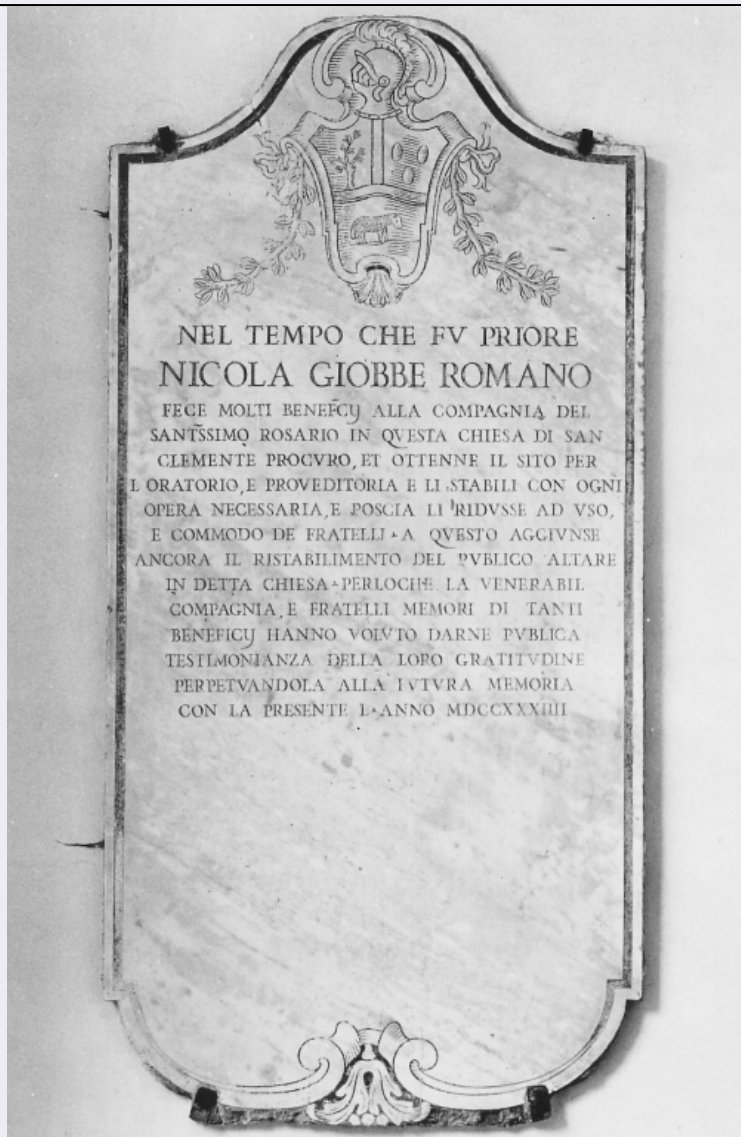 NEL TEMPO CHE FV PRIORE
NICOLA GIOBBE ROMANO
FECE MOLTI BENEFC̄IJ ALLA COMPAGNIA DEL
SANTS̄SIMO ROSARIO IN QVESTA CHIESA DI SAN
CLEMENTE PROCVRO, ET OTTENNE IL SITO PER
L ORATORIO, E PROVEDITORIA E LI STABILI CON OGNI
OPERA NECESSARIA, E POSCIA LI RIDVSSE AD VSO,
E COMMODO DE FRATELLI · A QVESTO AGGIVNSE
ANCORA IL RISTABILIMENTO DEL PVBLICO ALTARE
IN DETTA CHIESA · PERLOCHE LA VENERABIL
COMPAGNIA, E FRATELLI MEMORI DI TANTI
BENEFICIJ HANNO VOLVTO DARNE PVBLICA
TESTIMONIANZA DELLA LORO GRATITVDINE
PERPETVANDOLA ALLA FVTVRA MEMORIA
CON LA PRESENTE L · ANNO MDCCXXXIIII